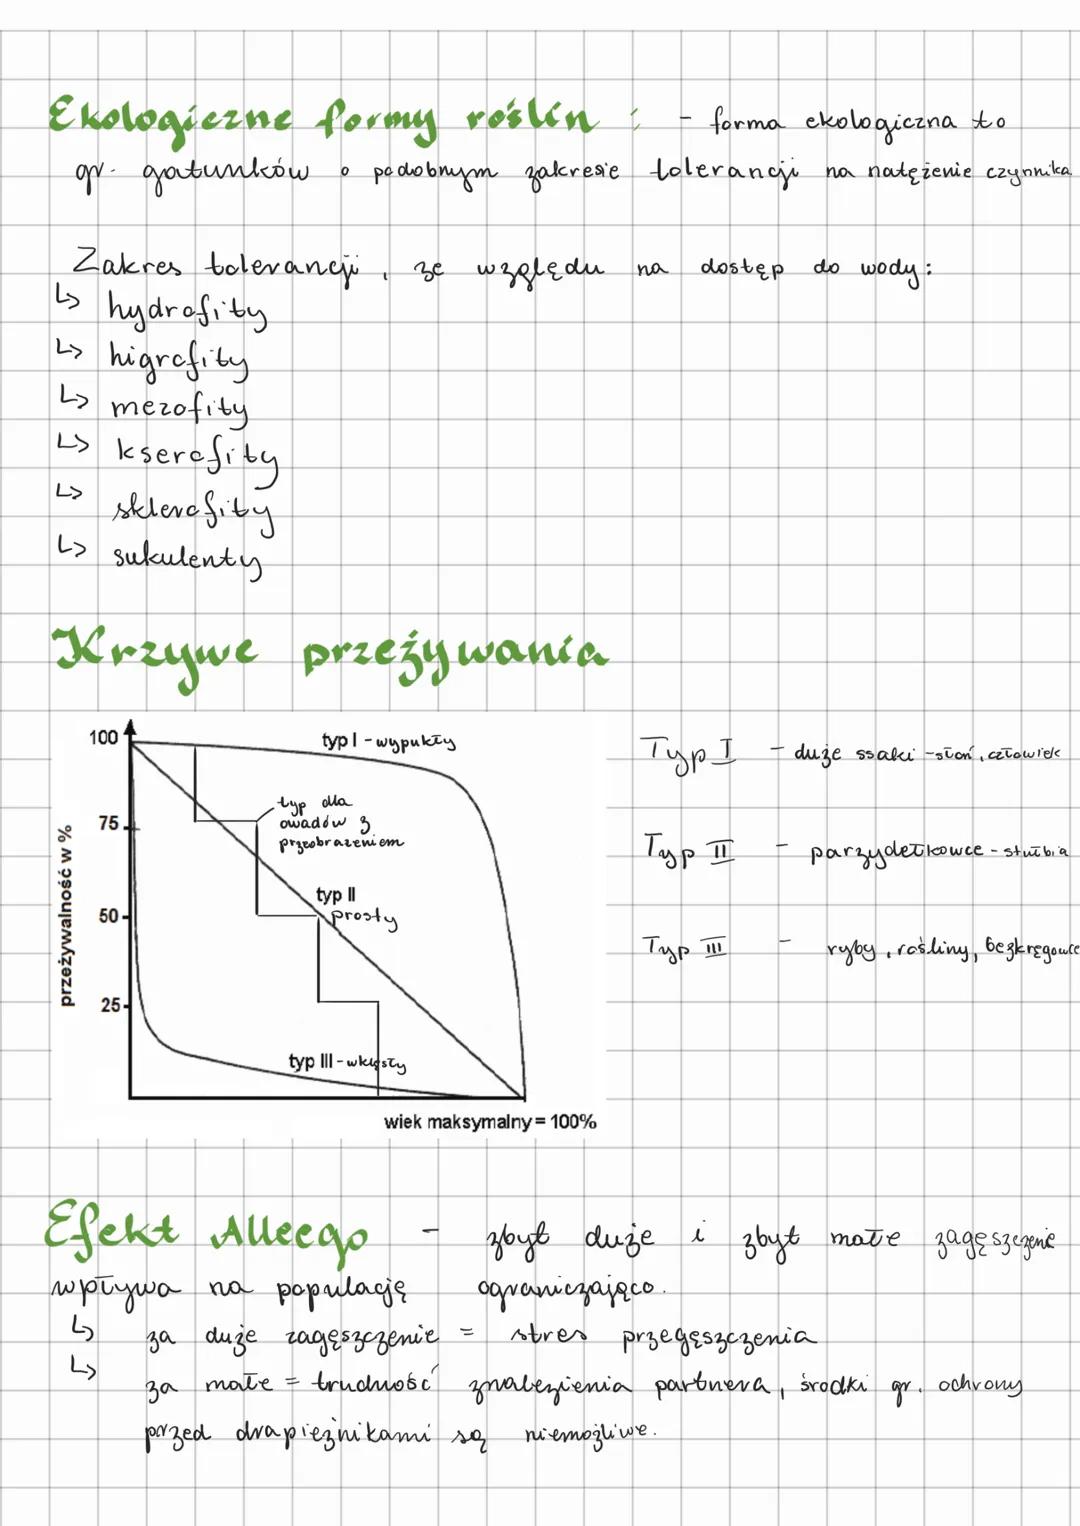 Ekologiczne formy roślin : - forma ekologiczna to
gr. gatunków o podobnym zakresie tolerancji na natężenie czynnika
Zakres tolerancji, ze względu na dostęp do wody:
↳ hydrofity
↳ higrofity
↳ mezofity
↳ kserofity
↳ sklerofity
↳ sukulenty
Krzywe przeżywania
100
75
50
25
przeżywalność w %
typ I - wypukły
typ dla
owadów z
przeobrażeniem
typ II
prosty
typ III - wklęsły
wiek maksymalny = 100%
Typ I - duże ssaki - słoń, człowiek
Typ II - parzydełkowce - stułbia
Typ III - ryby, rośliny, bezkręgowce
Efekt Alleego - zbyt duże i zbyt małe zagęszczenie
wpływa na populację ograniczająco.
↳ za duże zagęszczenie = stres przegęszczenia
↳ za małe = trudność znalezienia partnera, środki gr. ochrony
przed drapieżnikami są niemożliwe.